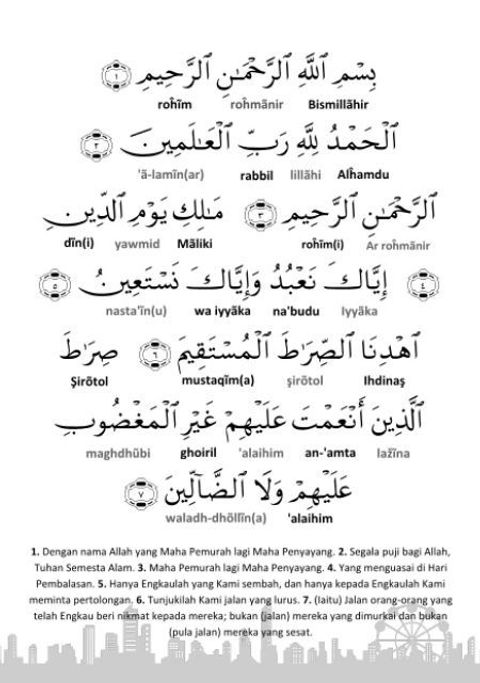 بِسْمِ ٱللَّهِ ٱلرَّحْمَـٰنِ ٱلرَّحِيمِ ١
Bismillāhir roĥmānir roĥīm
ٱلْحَمْدُ لِلَّهِ رَبِّ ٱلْعَـٰلَمِينَ ٢
Alĥamdu lillāhi rabbil 'ā-lamīn(ar)
ٱلرَّحْمَـٰنِ ٱلرَّحِيمِ ٣ مَـٰلِكِ يَوْمِ ٱلدِّينِ
Ar roĥmānir roĥīm(i) Māliki yawmid dīn(i)
٤ إِيَّاكَ نَعْبُدُ وَإِيَّاكَ نَسْتَعِينُ ٥
Iyyāka na'budu wa iyyāka nasta'īn(u)
ٱهْدِنَا ٱلصِّرَٰطَ ٱلْمُسْتَقِيمَ ٦ صِرَٰطَ
Ihdinaş şirōtol mustaqīm(a) Şirōtol
ٱلَّذِينَ أَنْعَمْتَ عَلَيْهِمْ غَيْرِ ٱلْمَغْضُوبِ
lažīna an-'amta 'alaihim ghoiril maghdhūbi
عَلَيْهِمْ وَلَا ٱلضَّآلِّينَ ٧
'alaihim waladh-dhōllīn(a)
1. Dengan nama Allah yang Maha Pemurah lagi Maha Penyayang. 2. Segala puji bagi Allah,
Tuhan Semesta Alam. 3. Maha Pemurah lagi Maha Penyayang. 4. Yang menguasai di Hari
Pembalasan. 5. Hanya Engkaulah yang Kami sembah, dan hanya kepada Engkaulah Kami
meminta pertolongan. 6. Tunjukilah Kami jalan yang lurus. 7. (Iaitu) Jalan orang-orang yang
telah Engkau beri nikmat kepada mereka; bukan (jalan) mereka yang dimurkai dan bukan
(pula jalan) mereka yang sesat.